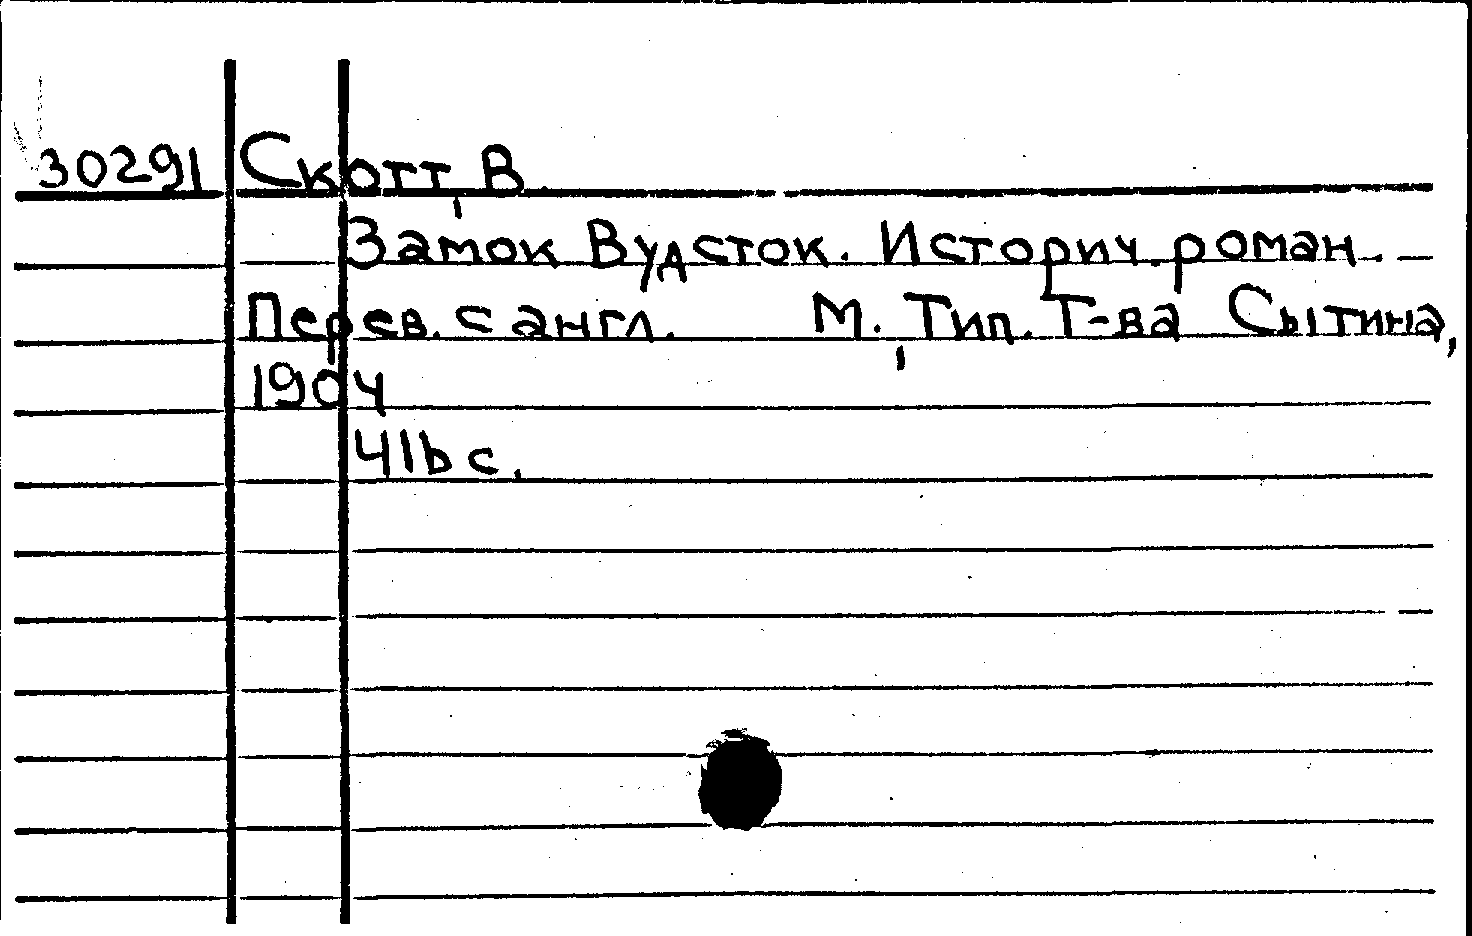 30291 Скотт, В.
Замок Вудсток. Историч. роман. —
Перев. с англ. М., Тип. Т-ва Сытина,
1904
416 с.